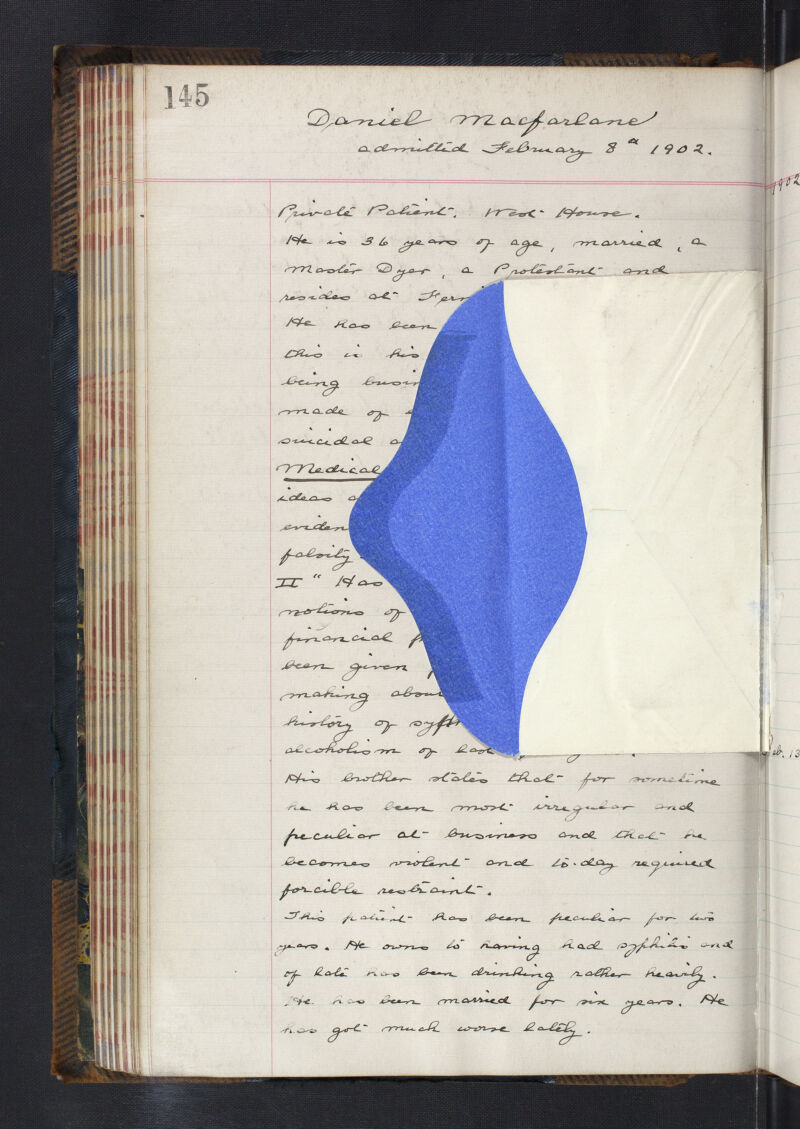 145
Daniel Macfarlane
admitted February 8th 1902.
1902
Private Patient. West House.
He is 36 years of age, married, a
Master Dyer, a Protestant and
resides at
He has been
this is his
being
made of
suicidal
Medical
ideas
falsity
II " Has
notions of
financial
been given
making about
history of
alcoholism of late
Feb. 13
His brother states that for sometime
he has been most irregular and
peculiar at business and that he
becomes violent and to-day required
forcible restraint.
This patient has been peculiar for two
years. He owns to having had syphilis and
of late has been drinking rather heavily.
He has been married for six years. He
has got much worse lately.